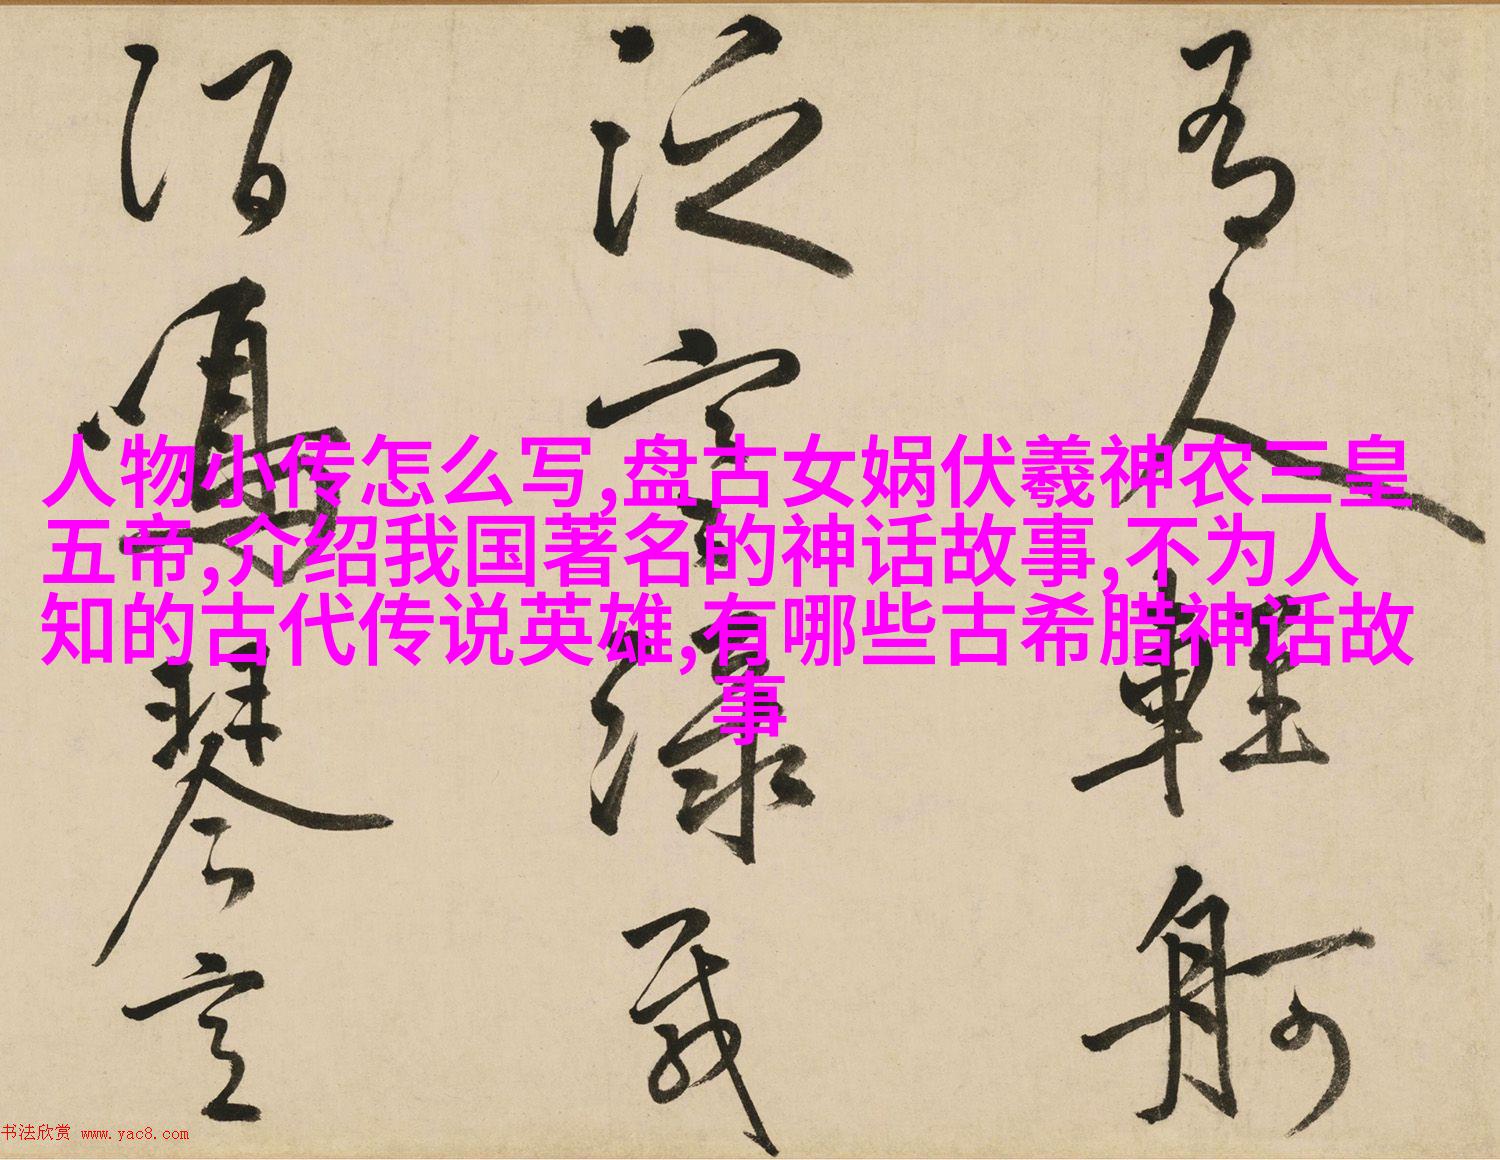 有人輕舸
泛宅渌載
陌鳴琴言
人物小传怎么写,盘古女娲伏羲神农三皇
五帝,介绍我国著名的神话故事,不为人
知的古代传说英雄,有哪些古希腊神话故
事
书法欣赏 www.yac8.com